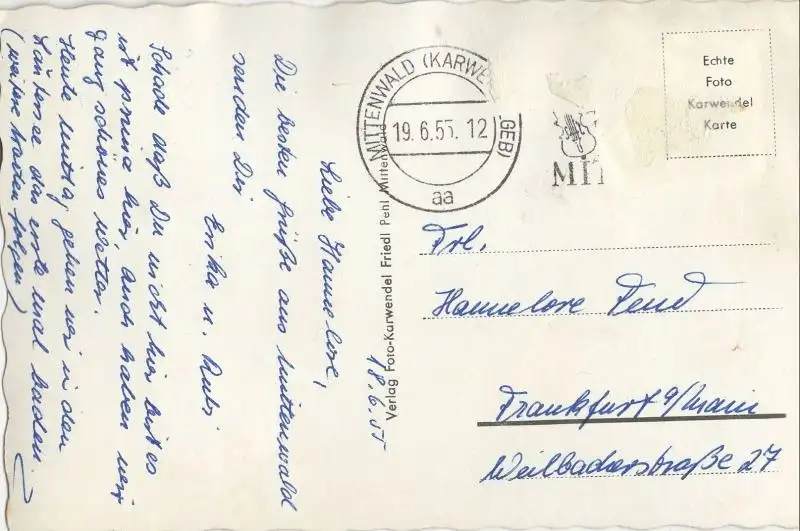 18.6.55
Liebe Hannelore,
Die besten Grüße aus Mittenwald
senden Dir
Erika u. Rudi
Schade daß Du nicht hier bist es
ist prima hier, auch haben wir
ganz schönes Wetter.
Heute Mittag gehen wir in den
Lautersee das erste mal baden.
(weitere Karten folgen)
Verlag Foto-Karwendel Friedl Pehl Mittenwald
MITTENWALD (KARWE
GEB)
19.6.55. 12
aa
MIT
Echte
Foto
Karwendel
Karte
Frl.
Hannelore Fend
Frankfurt a/Main
Weilbacherstraße 27